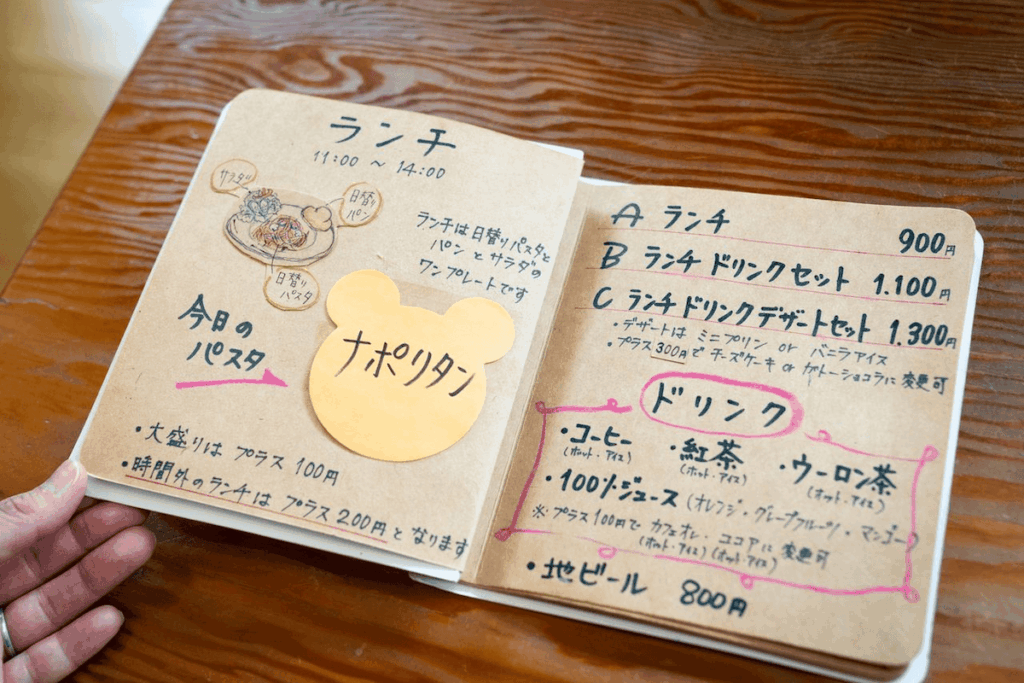 ランチ
11:00 〜 14:00
サラダ
日替り
パン
日替り
パスタ
ランチは日替りパスタと
パンとサラダの
ワンプレートです
今日の
パスタ
ナポリタン
・大盛りは プラス 100円
・時間外のランチは プラス 200円となります
A ランチ 900円
B ランチ ドリンクセット 1.100円
C ランチ ドリンクデザートセット 1.300円
・デザートは ミニプリン or バニラアイス
・プラス 300円で チーズケーキ or ガトーショコラに変更可
ドリンク
・コーヒー ・紅茶 ・ウーロン茶
(ホット・アイス) (ホット・アイス) (ホット・アイス)
・100%ジュース (オレンジ・グレープフルーツ・マンゴー)
※プラス100円で カフェオレ・ココアに変更可
(ホット・アイス) (ホット・アイス)
・地ビール 800円